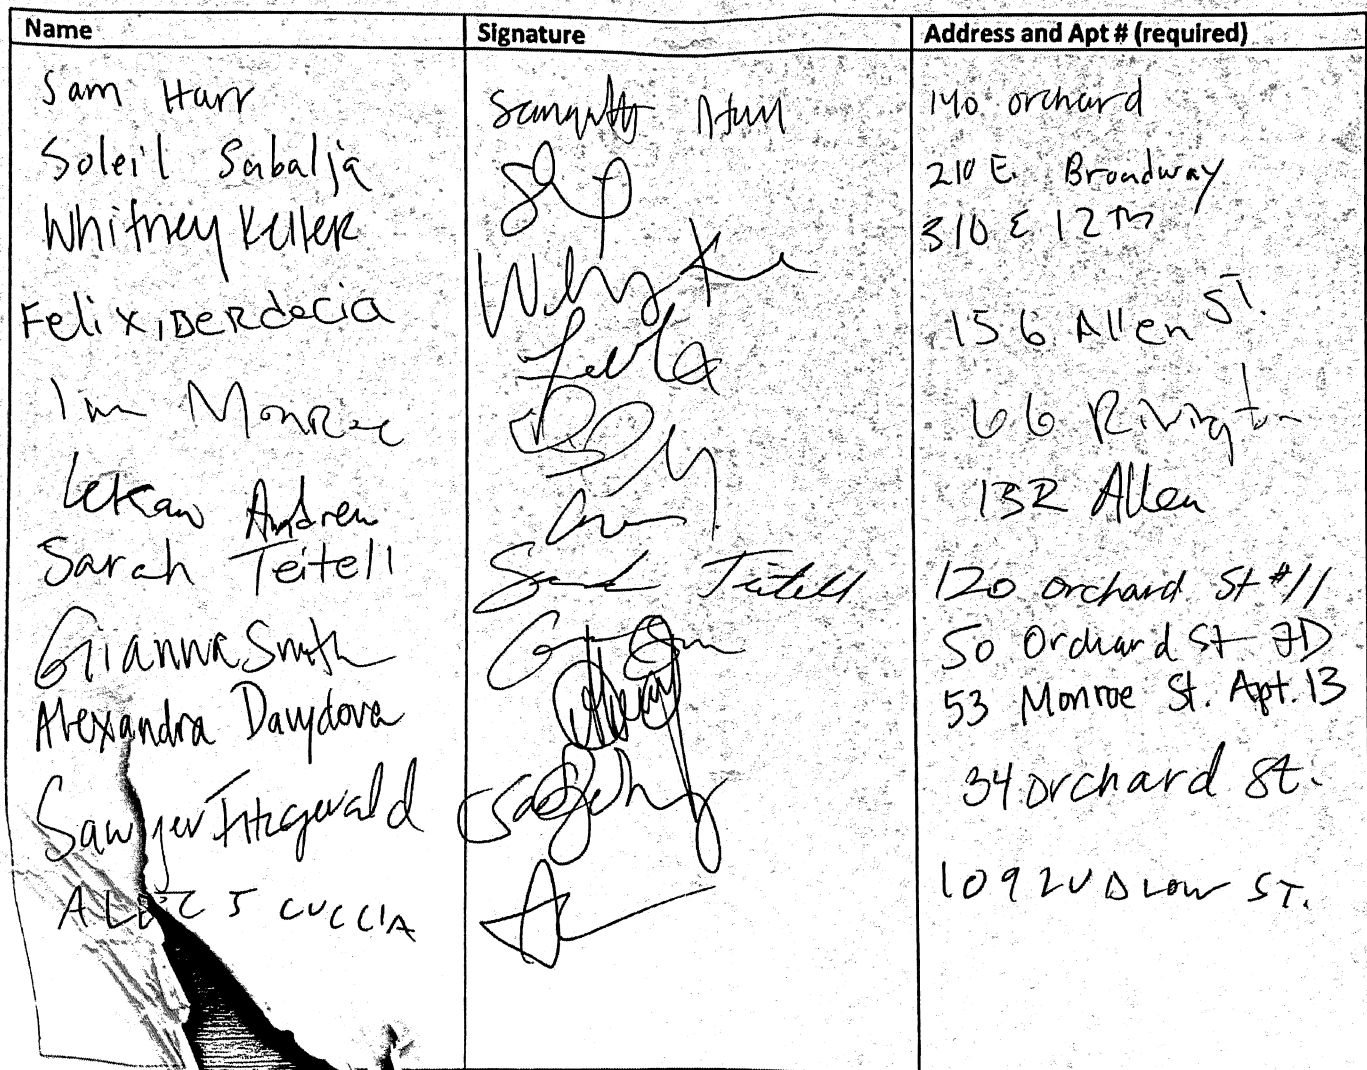 Name Signature Address and Apt # (required)
Sam Harr 140 orchard
Soleil Sabalja 210 E. Broadway
Whitney Keller 310 E 12Th
Felix, BeRdecia 156 Allen ST.
MonRoe 66 Rivington
Lekan Andrew 132 Allen
Sarah Teitell Sarah Teitell 120 orchard St #11
Gianna Smith 50 Orchard St 7D
Alexandra Davydova 53 Monroe St. Apt. 13
Sawyer Fitzgerald 34 orchard St.
ALEC J CUCCIA 109 LUDLOW ST.